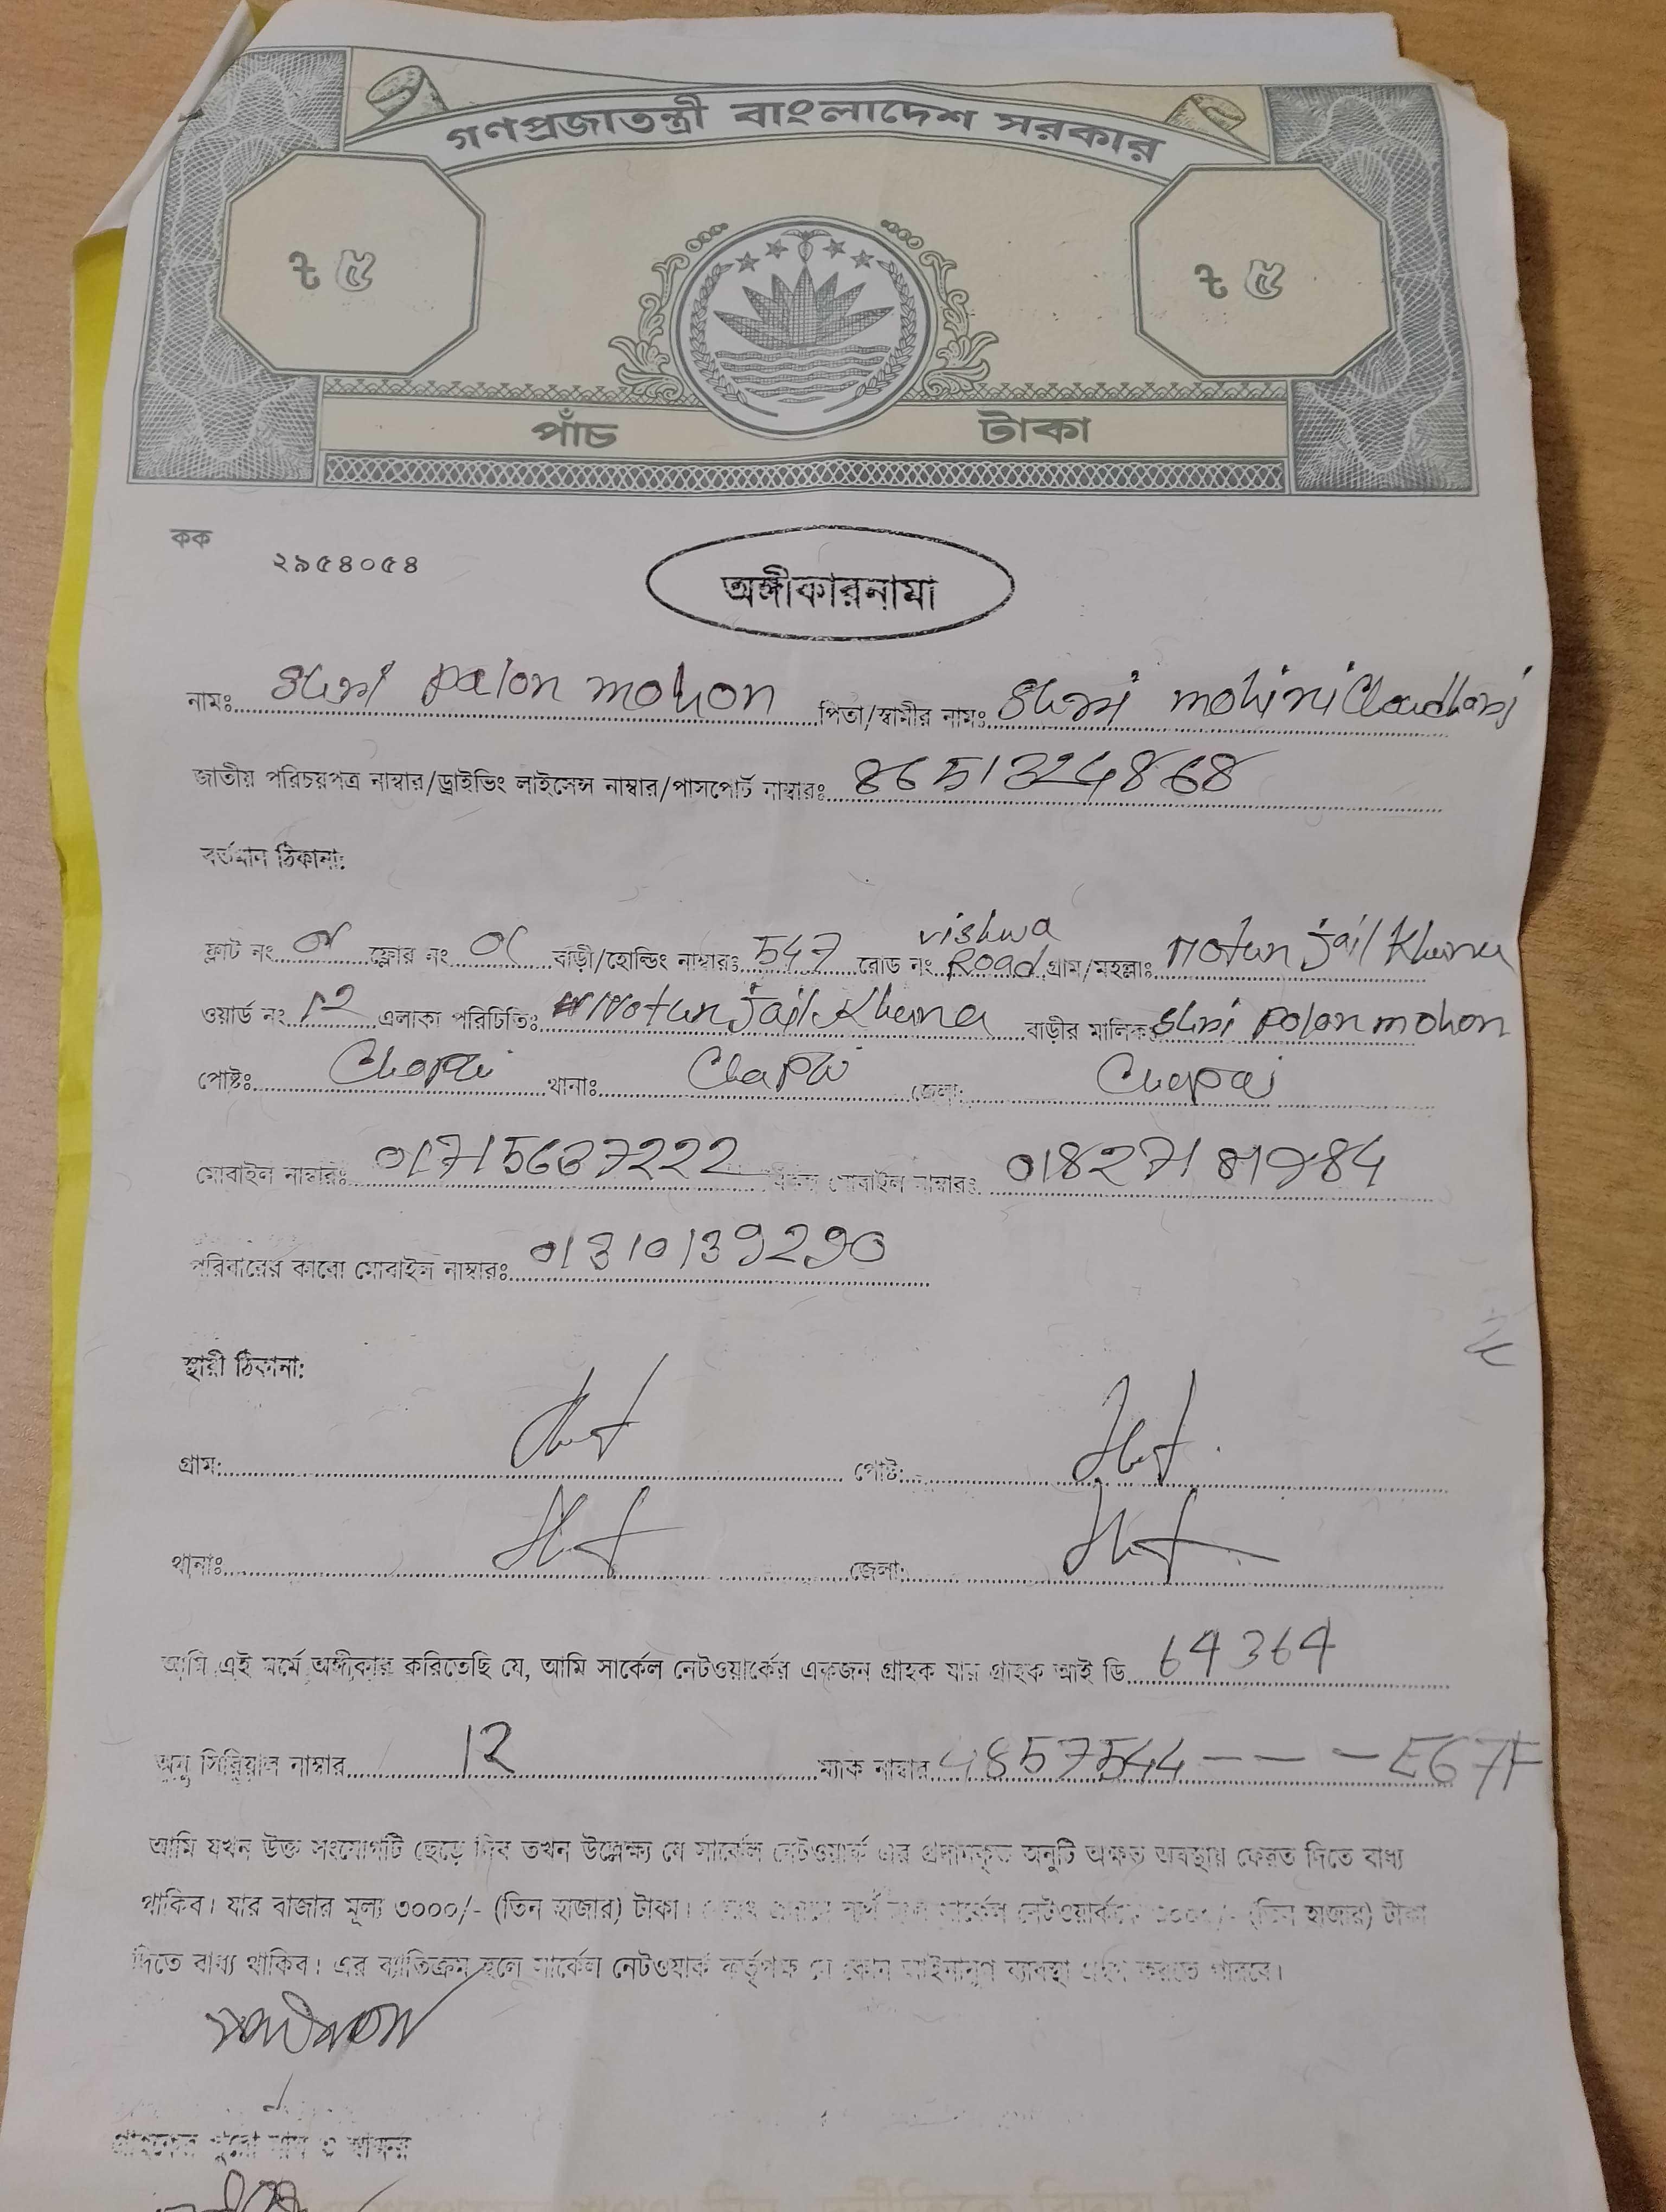 গণপ্রজাতন্ত্রী বাংলাদেশ সরকার
৳ ৫ ৳ ৫
পাঁচ টাকা
কক
২৯৫৪০৫৪
অঙ্গীকারনামা
নামঃ Shri palon mohon পিতা/স্বামীর নামঃ Shri mohini Choudhori
জাতীয় পরিচয়পত্র নাম্বার/ড্রাইভিং লাইসেন্স নাম্বার/পাসপোর্ট নাম্বারঃ 8651324868
বর্তমান ঠিকানা:
ফ্লাট নং ফ্লোর নং বাড়ী/হোল্ডিং নাম্বারঃ 547 রোড নং vishwa Road গ্রাম/মহল্লাঃ Notun jail Khana
ওয়ার্ড নং 12 এলাকা পরিচিতিঃ Notun jail Khana বাড়ীর মালিকঃ Shri polon mohon
পোষ্টঃ Chapai থানাঃ Chapai জেলা: Chapai
মোবাইল নাম্বারঃ 01715637222 মোবাইল নাম্বারঃ 01827181984
পরিবারের কারো মোবাইল নাম্বারঃ 01310139290
স্থায়ী ঠিকানা:
গ্রাম: পোষ্ট:
থানাঃ জেলা:
আমি এই মর্মে অঙ্গীকার করিতেছি যে, আমি সার্কেল নেটওয়ার্কের একজন গ্রাহক যার গ্রাহক আই ডি 64364
অনু সিরিয়াল নাম্বার 12 ম্যাক নাম্বার 4857544 - - - E67F
আমি যখন উক্ত সংযোগটি ছেড়ে দিব তখন উল্লেক্ষ্য যে সার্কেল নেটওয়ার্ক এর প্রদানকৃত অনুটি অক্ষত অবস্থায় ফেরত দিতে বাধ্য
থাকিব। যার বাজার মূল্য ৩০০০/- (তিন হাজার) টাকা। সার্কেল নেটওয়ার্ককে ৩০০০/- (তিন হাজার) টাকা
দিতে বাধ্য থাকিব। এর ব্যাতিক্রম হলে সার্কেল নেটওয়ার্ক কর্তৃপক্ষ যে কোন আইনানুগ ব্যাবস্থা গ্রহণ করতে পারবে।
গ্রাহকের পুরো নাম ও স্বাক্ষর